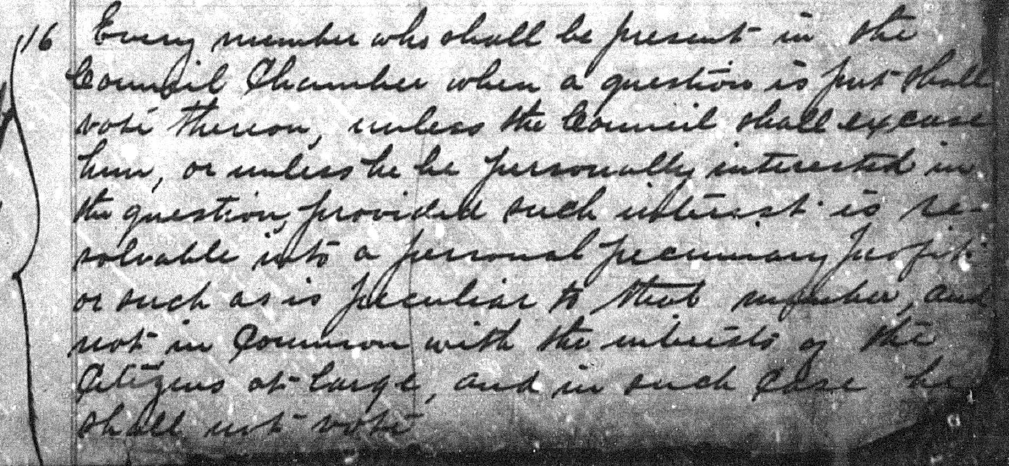 16 Every member who shall be present in the
Council Chamber when a question is put shall
vote thereon, unless the Council shall excuse
him, or unless he be personally interested in
the question, provided such interest is re-
solvable into a personal pecuniary profit
or such as is peculiar to that member, and
not in Common with the interests of the
Citizens at large, and in such Case he
shall not vote